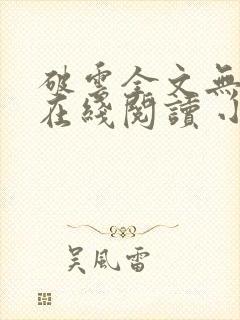 破雲全文無
在綫閱讀小
吴風雷